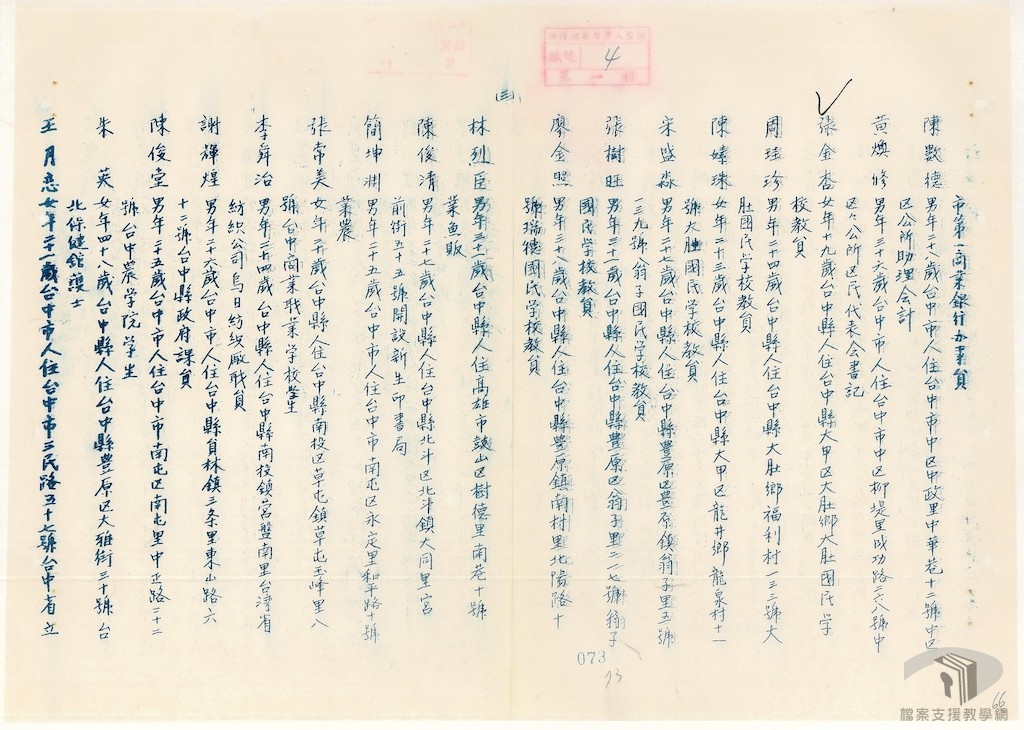 市第一商業銀行办事員
陳數德 男年二十八歲台中市人住台中市中区中政里中華巷十二號中区
区公所助理会計
黃煥修 男年三十六歲台中市人住台中市中区柳堤里成功路二六八號中
区々公所区民代表会書記
張金杏 女年十九歲台中縣人住台中縣大甲区大肚鄉大肚國民学
校教員
周珪珍 男年二十四歲台中縣人住台中縣大肚鄉福利村一三三號大
肚國民学校教員
陳嫊珠 女年二十三歲台中縣人住台中縣大甲区龍井鄉龍泉村十一
號大肚國民学校教員
宋盛淼 男年二十七歲台中縣人住台中縣豐原区豊原鎮翁子里五號
一三九號翁子國民学校教員
張樹旺 男年三十一歲台中縣人住台中縣豐原区翁子里二二七號翁子
國民学校教員
廖金照 男年三十八歲台中縣人住台中縣豐原鎮南村里北陽路十
號瑞德國民学校教員
(三)
林烈臣 男年三十一歲台中縣人住高雄市鼓山区樹德里南巷十號
業魚販
陳俊清 男年二十七歲台中縣人住台中縣北斗区北斗鎮大同里宮
前街五十五號開設新生印書局
簡坤渊 男年二十五歲台中市人住台中市南屯区永定里和平路十號
業農
張常美 女年二十歲台中縣人住台中縣南投区草屯鎮草屯玉峰里八
號台中商業職業学校学生
李舜治 男年二十四歲台中縣人住台中縣南投鎮营盤南里台湾省
紡織公司烏日紡織廠戝員
謝輝煌 男年二十六歲台中市人住台中縣員林鎮三条里東山路六
十二號台中縣政府課員
陳俊堂 男年二十五歲台中市人住台中市南屯区南屯里中正路三十二
號台中農学院学生
朱 英 女年四十八歲台中縣人住台中縣豐原区大雅街三十號台
北保健館護士
王月 女年二十一歲台中市人住台中市三民路五十七號台中省立
4
073
73
66
檔案支援教學網